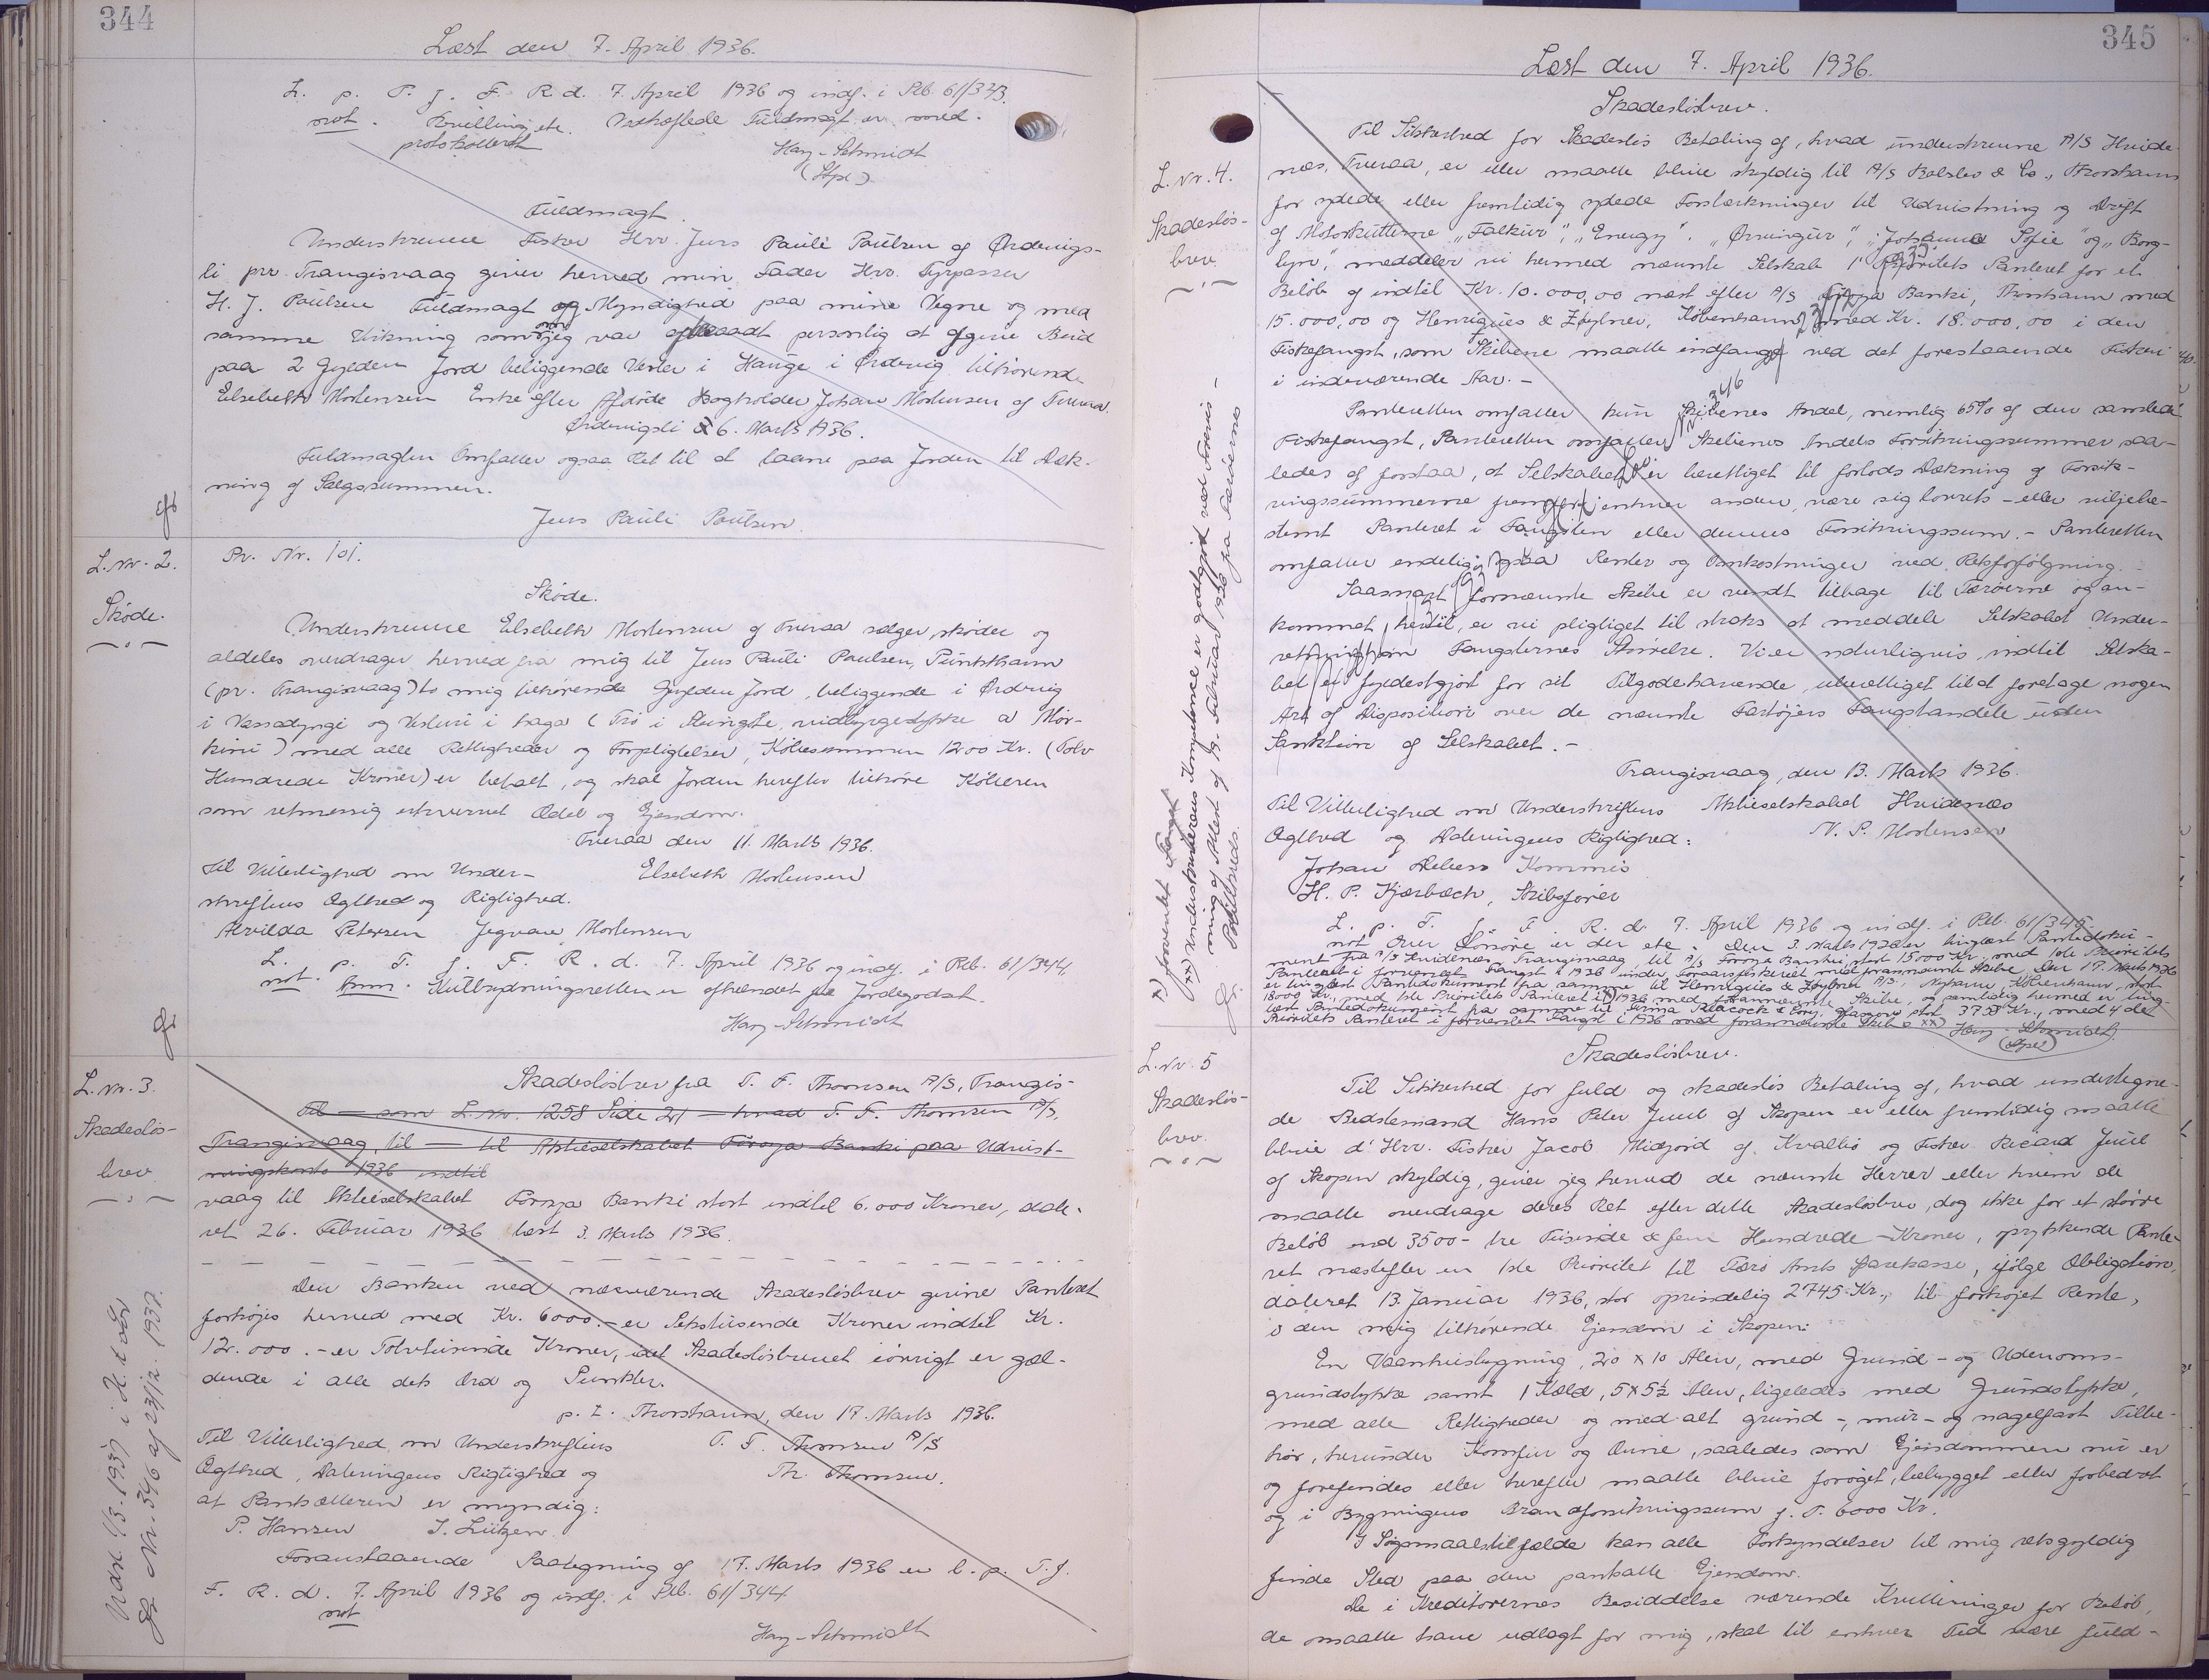 344
Læst den 7. April 1936.
L. p. T. f. F. R. d. 7. April 1936 og indf. i Pb. 61/343.
not. Kvittering etc. Vedhæftede Fuldmagt er med-
protokolleret
Hay-Schmidt
(Fuldmagt
Underskrevne Fisker Hrr. Jens Pauli Poulsen af Ørdevigs-
li pr. Trangisvaag giver herved min Fader Hrr. Fyrpasser
H. J. Paulsen Fuldmagt og Myndighed paa mine Vegne og med
samme Virkning som om jeg var personlig at afgive Bud
paa 2 Gylden Jord beliggende Vester i Hauge i Ørdevig tilhørende
Elsebeth Mortensen Enke efter Afdøde Bogholder Johan Mortensen af Tveraa.
Ørdevigsli 6. Marts 1936.
Fuldmagten Omfatter ogsaa Ret til at laane paa Jorden til Dæk-
ning af Salgssummen.
Jens Pauli Poulsen
L. Nr. 2.
Skøde.
Pr. Nr. 101.
Skøde.
Underskrevne Elsebeth Mortensen af Tveraa sælger, skøder og
aldeles overdrager herved fra mig til Jens Pauli Poulsen,
(pr. Trangisvaag) to mig tilhørende Gylden Jord, beliggende i Ørdevig
i og i haga (
) med alle Rettigheder og Forpligtelser, Købesummen 1200 Kr. (Tolv
Hundrede Kroner) er betalt, og skal Jorden herefter tilhøre Køberen
som retmæssig erhvervet Odel og Ejendom.
Tveraa den 11. Marts 1936.
Til Vitterlighed om Under-
skriftens Ægthed og Rigtighed.
Elsebeth Mortensen
Alvilda Petersen Jegvan Mortensen
L. p. T. f. F. R. d. 7. April 1936 og indf. i Pb. 61/344.
not. Anm. Hvidbydningsretten er afhændet fra Jordegodset.
Hay-Schmidt
L. Nr. 3.
Skadesløs-
brev
Skadesløsbrev fra T. F. Thomsen A/S, Trangis-
Til — som L. Nr. 1258 Side 21 — hvad T. F. Thomsen A/S,
Trangisvaag, til — til Aktieselskabet Føroya Banki paa Udrust-
ningskonto 1936 indtil
vaag til Aktieselskabet Føroya Banki stort indtil 6.000 Kroner, date-
ret 26. Februar 1936 læst 3. Marts 1936.
Den Banken ved nærværende Skadesløsbrev givne Panteret
forhøjes herved med Kr. 6000.- er Sekstusende Kroner indtil Kr.
12.000.- er Tolvtusinde Kroner, idet Skadesløsbrevet iøvrigt er gæl-
dende i alle dets Ord og Punkter.
p. t. Thorshavn, den 17. Marts 1936.
Til Vitterlighed om Underskriftens
Ægthed, Dateringens Rigtighed og
at Pantsætteren er myndig:
T. F. Thomsen A/S
Th. Thomsen.
P. Hansen J. Lützen
Foranstaaende Paategning af 17. Marts 1936 er l. p. T. f.
F. R. d. 7. April 1936 og indf. i Pb. 61/344
not
Hay-Schmidt
345
Læst den 7. April 1936.
L. Nr. 4.
Skadesløs-
brev.
Skadesløsbrev.
Til Sikkerhed for skadesløs Betaling af, hvad underskrevne A/S Hvide-
næs, Tveraa, er eller maatte blive skyldig til A/S Balslev & Co., Thorshavn
for ydede eller fremtidig ydede Forstrækninger til Udrustning og Drift
af Motorkutterne "Falkur", "Energy", "Ørningur", "Johanne Sofie" og "Borg-
lyn", meddeler vi hermed nævnte Selskab 1' Prioritets Panteret for et
Beløb af indtil Kr. 10.000,00 næst efter A/S Føroya Banki, Thorshavn med
15.000,00 og Henriques & Zøylner, København, med Kr. 18.000,00 i den
Fiskefangst, som Skibene maatte indfange ved det forestaaende Fiskeri
i indeværende Aar. -
Panteretten omfatter kun Skibenes Andel, nemlig 65% af den samlede
Fiskefangst, Panteretten omfatter Skibenes Andels Forsikringssummer saa-
ledes at forstaa, at Selskabet er berettiget til forlods Dækning af Forsik-
ringssummerne fremfor enhver anden, være sig lovrets- eller viljebe-
stemt Panteret i Fangsten eller dennes Forsikringssum. - Panteretten
omfatter endelig ogsaa Renter og Omkostninger ved Retsforfølgning.
Saasnart fornævnte Skibe er vendt tilbage til Færøerne og an-
kommet hertil, er vi pligtiget til straks at meddele Selskabet Under-
retning om Fangsternes Størrelse. Vi er naturligvis, indtil Selska-
bet er fyldestgjort for sit Tilgodehavende, uberettiget til at foretage nogen
Art af Disposition over de nævnte Fartøjers Fangstandele uden
Sanktion af Selskabet. -
Trangisvaag, den 13. Marts 1936.
Til Vitterlighed om Underskriftens
Ægthed og Dateringens Rigtighed:
Aktieselskabet Hvidenæs
N. P. Mortensen
Johan Kommis
H. P. Kjærbæck, Skibsfører
L. p. T. f. F. R. d. 7. April 1936 og indf. i Pb. 61/345.
not. Den 3. Marts 1936 er tinglæst Pantedoku-
ment fra A/S Hvidenæs, Trangisvaag, til A/S Føroya Banki, stort 15000 Kr., med 1ste Prioritets
Panteret i forventet Fangst i 1936 under Foraarsfiskeriet med fornævnte Skibe, den 17. Marts 1936
er tinglæst Pantedokument fra samme til Henriques & Zøylner A/S, København, stort
18000 Kr., med 1ste Prioritets Panteret i x) 1936 med fornævnte Skibe, og samtidig hermed er ting-
læst Pantedokument fra samme til Firma, Glasgow stort 3750 Kr., med 4de
Prioritets Panteret i forventet Fangst i 1936 med fornævnte Skibe xx) Hay-Schmidt
x) forventet Fangst
xx) Underskriverens Kompetence er godtgjort ved Forevis-
ning af Attest af 19. Februar 1936 fra Færøernes
Politikreds.
L. Nr. 5
Skadesløs-
brev.
Skadesløsbrev.
Til Sikkerhed for fuld og skadesløs Betaling af, hvad undertegne-
de Bedstemand Hans Peter Juul af Skopen er eller fremtidig maatte
blive d'Hrr. Fisker Jacob Midjord af Kvalbø og Fisker Ricard Juul
af Skopen skyldig, giver jeg herved de nævnte Herrer eller hvem de
maatte overdrage deres Ret efter dette Skadesløsbrev, dog ikke for et større
Beløb end 3500- tre Tusinde & fem Hundrede - Kroner, oprykkende Pante-
ret næstefter en 1ste Prioritet til Færø Amts Sparekasse, ifølge Obligation,
dateret 13. Januar 1936, stor oprindelig 2745 Kr., til forhøjet Rente,
i den mig tilhørende Ejendom i Skopen:
En Vaanhusbygning, 20 x 10 Alen, med Grund- og Udenoms-
grundstykke samt 1 Kæld, 5 x 5½ Alen, ligeledes med Grundstykke,
med alle Rettigheder og med alt grund-, mur- og nagelfast Tilbe-
hør, herunder Komfur og Ovne, saaledes som Ejendommen nu er
og forefindes eller herefter maatte blive forøget, bebygget eller forbedret
og i Bygningens Brandforsikringssum f. T. 6000 Kr.
I Søgsmaalstilfælde kan alle Forkyndelser til mig retsgyldig
finde Sted paa den pantsatte Ejendom.
De i Kreditorernes Besiddelse værende Kvitteringer for Beløb,
de maatte have udlagt for mig, skal til enhver Tid være fuld-